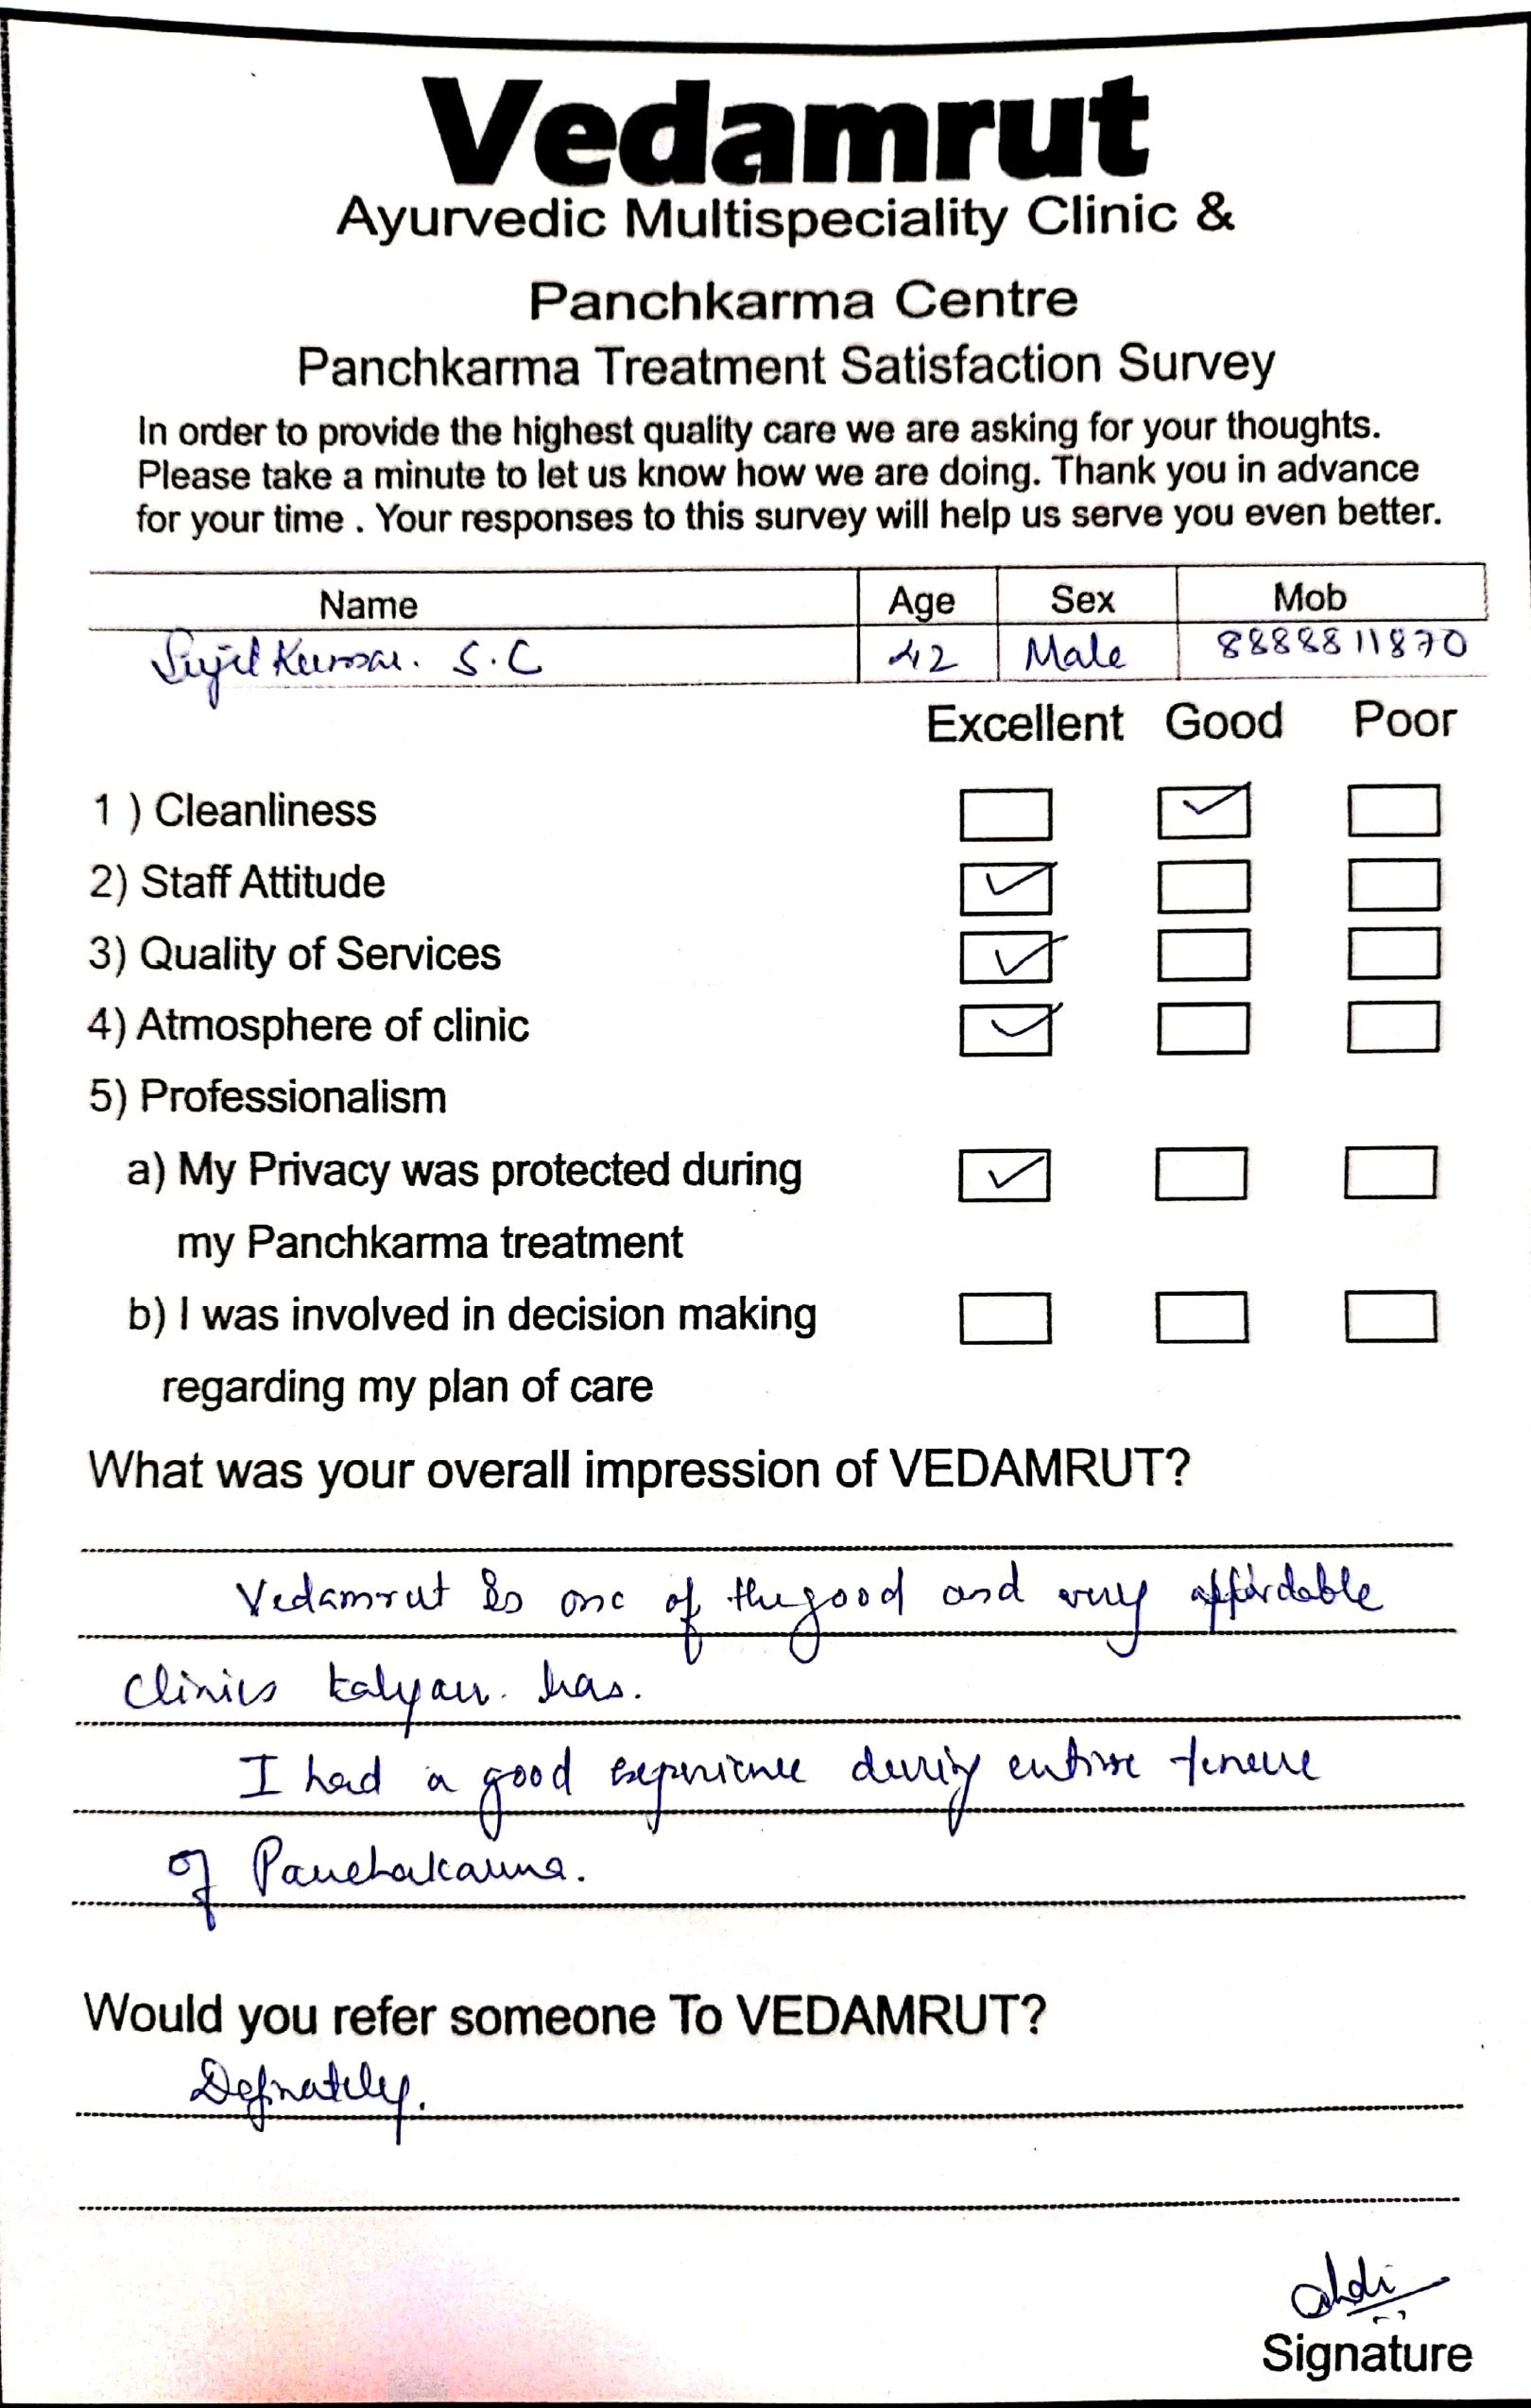 Vedamrut
Ayurvedic Multispeciality Clinic &
Panchkarma Centre
Panchkarma Treatment Satisfaction Survey
In order to provide the highest quality care we are asking for your thoughts.
Please take a minute to let us know how we are doing. Thank you in advance
for your time . Your responses to this survey will help us serve you even better.
Name Age Sex Mob
Sujit Kumar. S.C 42 Male 8888811870
Excellent Good Poor
1 ) Cleanliness
2) Staff Attitude
3) Quality of Services
4) Atmosphere of clinic
5) Professionalism
a) My Privacy was protected during
my Panchkarma treatment
b) I was involved in decision making
regarding my plan of care
What was your overall impression of VEDAMRUT?
Vedamrut is one of the good and very affordable
clinics kalyan. has.
I had a good experience during entire tenure
of Panchakarma.
Would you refer someone To VEDAMRUT?
Definately.
Signature